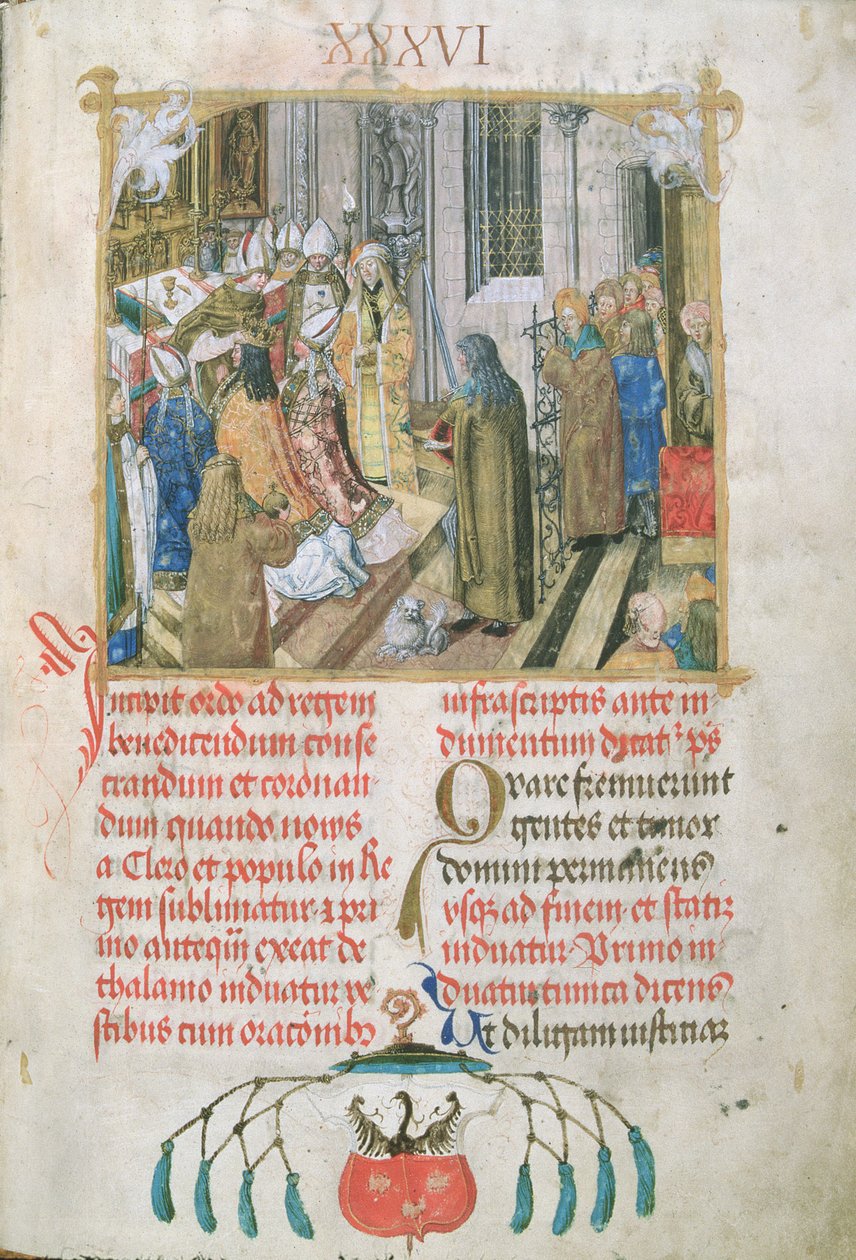 XXXVI
Incipit ordo ad regem
benedicendum conse
crandum et coronan-
dum quando novus
a Clero et populo in Re
gem sublimatur. ⁊ pri
mo anteqm̄ exeat de
thalamo induatur ve
stibus cum oracōnibꝫ
infrascriptis ante in-
dumentum dicatꝛ pꝰ
Qvare fremuerunt
gentes et timor
domini permanens
vsqꝫ ad finem. et statiꝫ
induatur. Primo in-
duatur tunica dicens
Ut diligam iustitiaꝫ